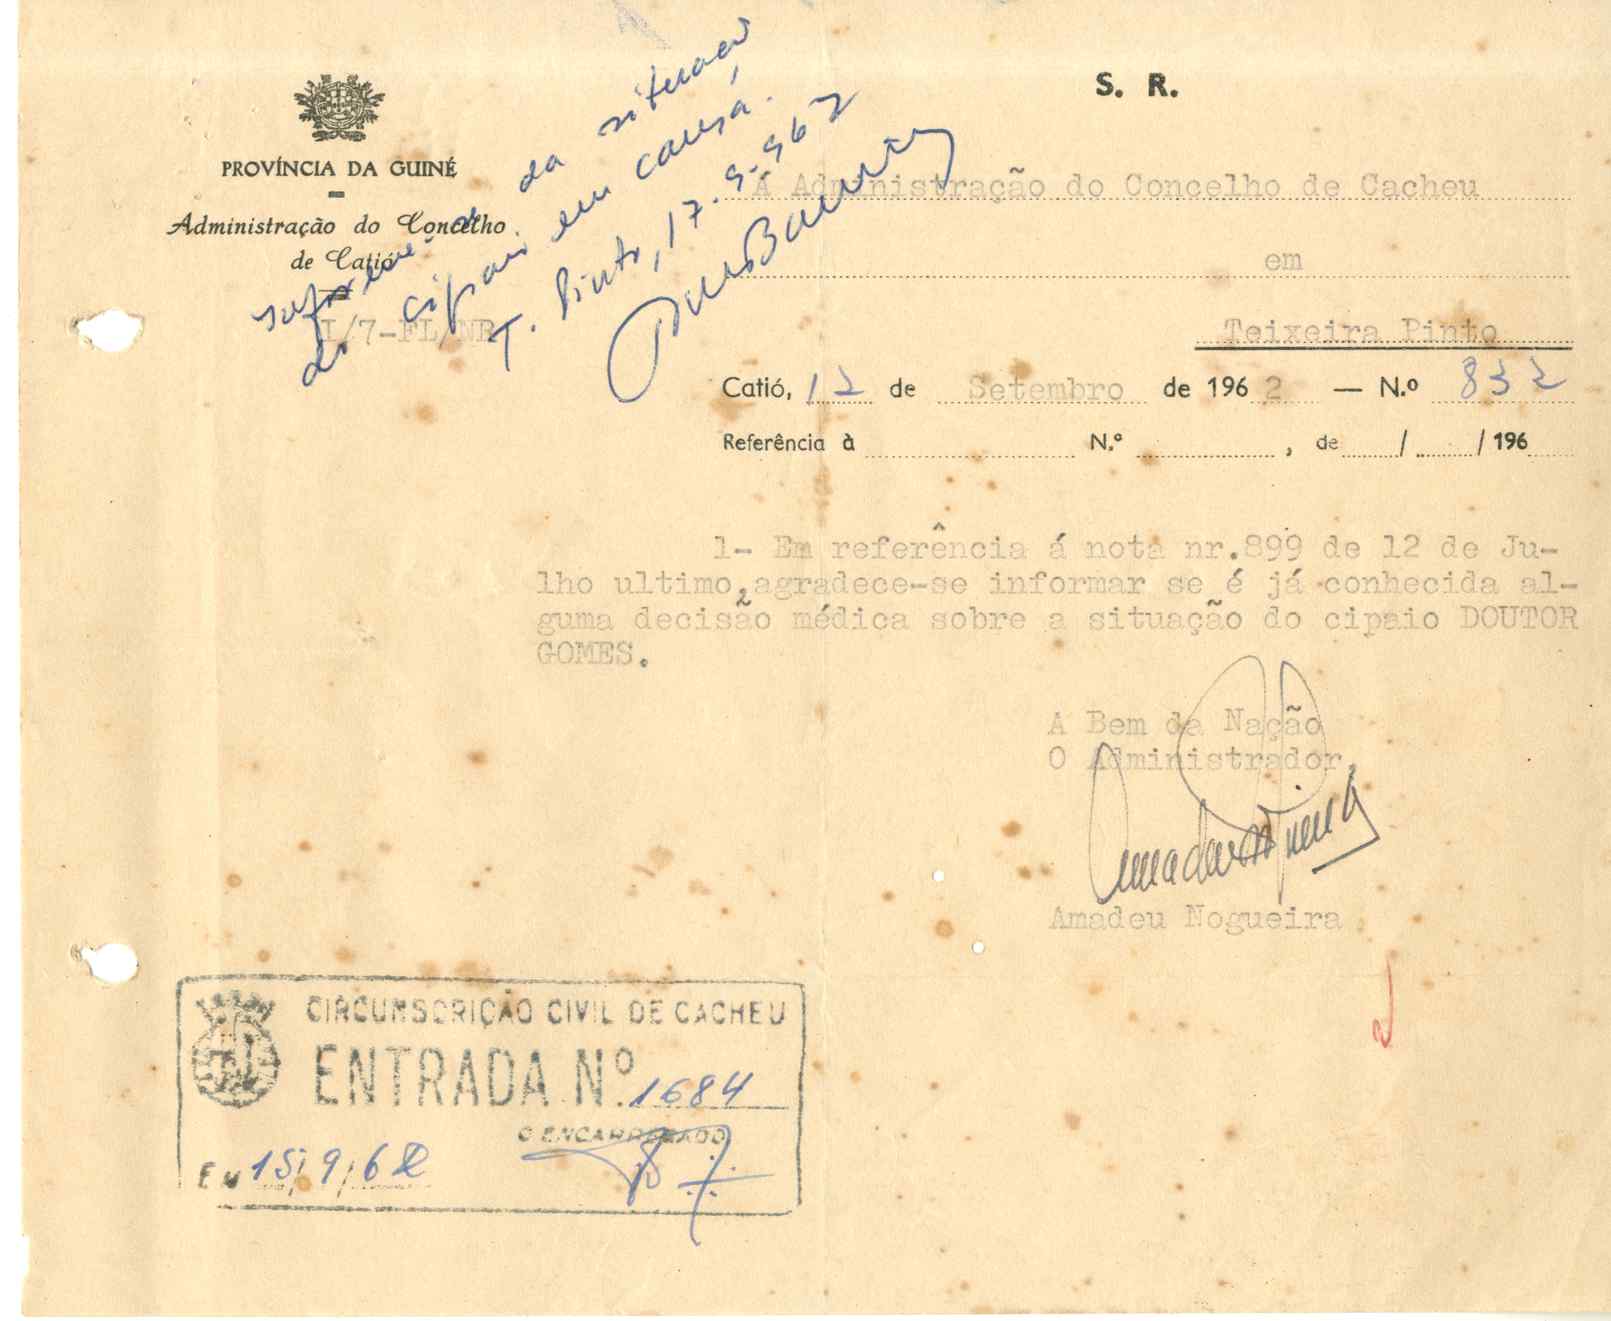 S. R.
PROVÍNCIA DA GUINÉ
Administração do Concelho
de Catió
I/7-FL/NR
Informe-se da situação
do cipaio em causa.
T. Pinto, 17.9.962
Á Administração do Concelho de Cacheu
em
Teixeira Pinto
Catió, 12 de Setembro de 1962 — N.º 832
Referência à N.º , de / /196
1- Em referência á nota nr.899 de 12 de Ju-
lho ultimo, agradece-se informar se é já conhecida al-
guma decisão médica sobre a situação do cipaio DOUTOR
GOMES.
A Bem da Nação
O Administrador,
Amadeu Nogueira
Amadeu Nogueira
CIRCUNSCRIÇÃO CIVIL DE CACHEU
ENTRADA N.º 1684
O ENCARREGADO
EM 15/9/62